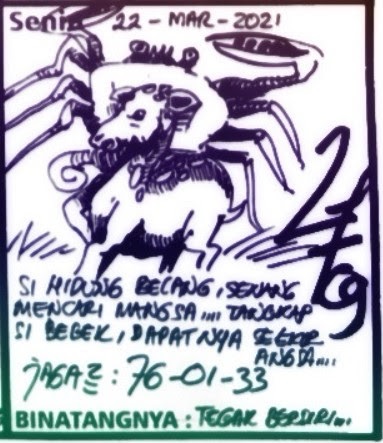 Senin 22 - MAR - 2021
SI HIDUNG BELANG, SENANG
MENCARI MANGSA.... TANGKAP
SI BEBEK, DAPATNYA SEEKOR
ANGSA....
JAGA2 : 76-01-33
BINATANGNYA : TEGAK BERDIRI...